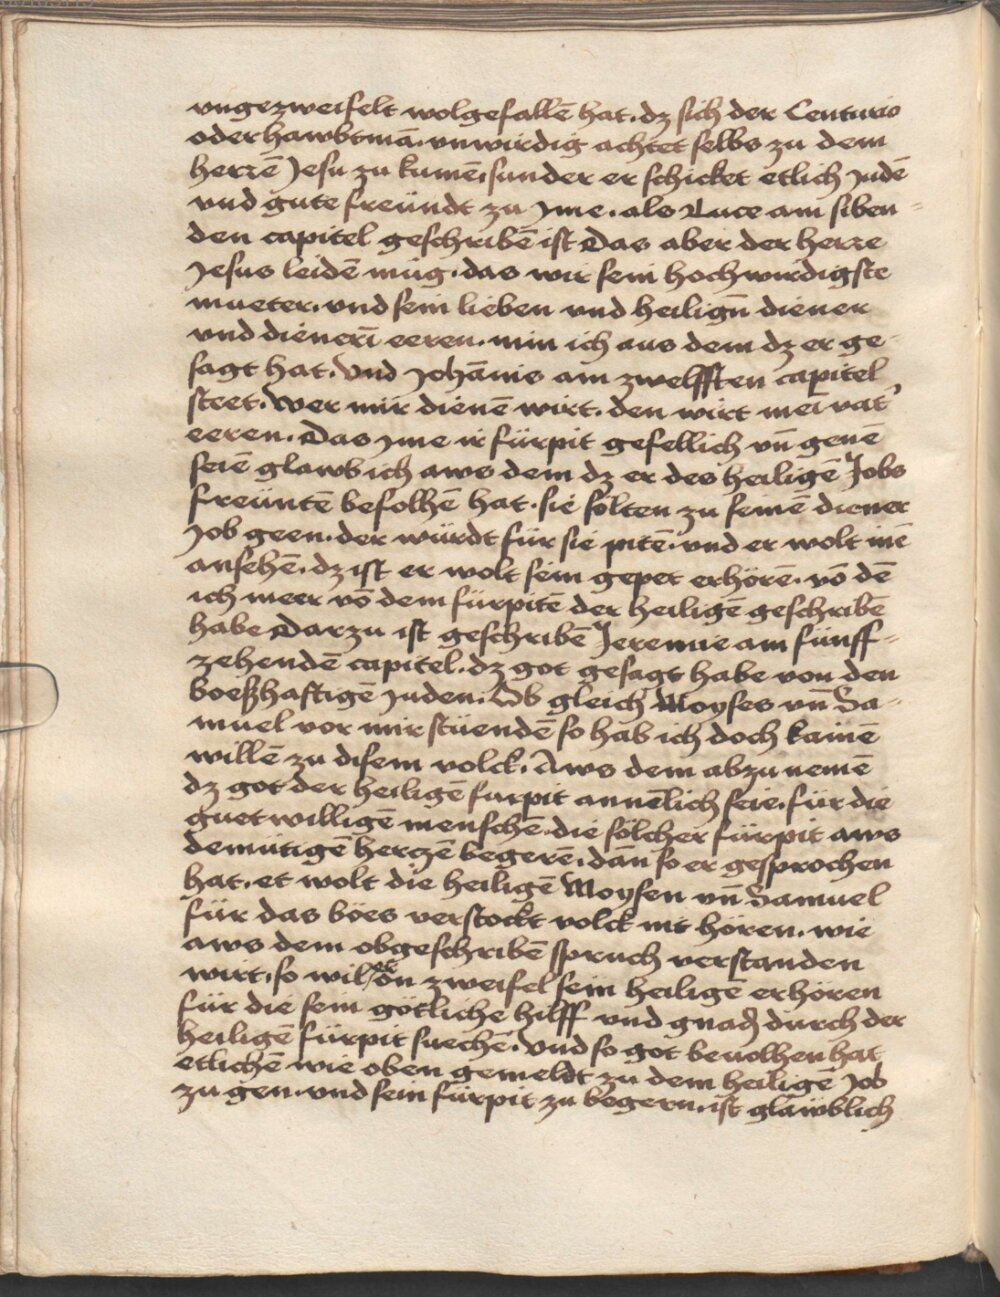 vngezweifelt wolgefallē hat. dz sich der Centurio
oder hawbtmā. vnwirdig achtet selbs zu dem
herrē Jesu zu kumē, sunder er schicket etlich Judē
vnd gute freündt zu jme. als Luce am siben-
den capitel geschribē ist Das aber der herre
Jesus leidē müg. das wir sein hochwirdigste
mueter. vnd sein lieben vnd heiligñ diener
vnd dienerī eeren. nim ich aus dem dz er ge-
sagt hat. Vnd Johānis am zwelfften capitel
steet. Wer mir dienē wirt. den wirt mei vat'
eeren. Das jme ir fürpit gefellich vñ genē
seiē glawb ich aws dem dz er des heiligē Jobs
freüntē befolhē hat. sie solten zu seinē diener
Job geen. der würdt für sie pitē. vnd er wolt inē
ansehē. dz ist er wolt sein gepet erhörē. vō dē
ich meer vō dem fürpitē der heiligē geschribē
habe Darzu ist geschribē Jeremie am fünff-
zehendē capitel. dz got gesagt habe von den
boeßhaftigē juden. Ob gleich Moyses vñ Sa-
muel vor mir stüendē so hab ich doch kainē
willē zu disem volck. Aws dem abzunemē
dz got der heiligē furpit annēlich seie. für die
guetwilligē menschē. die sölcher fürpit aws
demütigē hertzē begerē. dañ so er gesprochen
hat. er wolt die heiligē Moysen vñ Samuel
für das böes verstockt volck nit hören. wie
aws dem obgeschribē spruch verstanden
wirt. so wil er ōn zweifel sein heiligē erhören
für die sein götliche hilff vnd gnad durch der
heiligē fürpit suechē. Vnd so got beuolhen hat
etlichē wie oben gemeldt zu dem heiligē Job
zu gen. vnd sein fürpit zu begern. ist glawblich